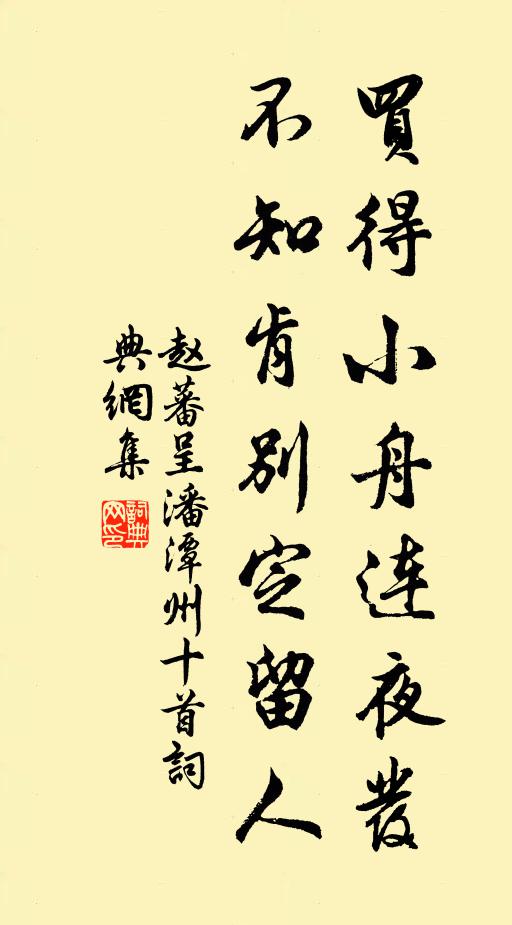 買得小舟連夜發
不知肯別定留人
赵蕃呈潘潭州十首詞
典網集
詞典网印